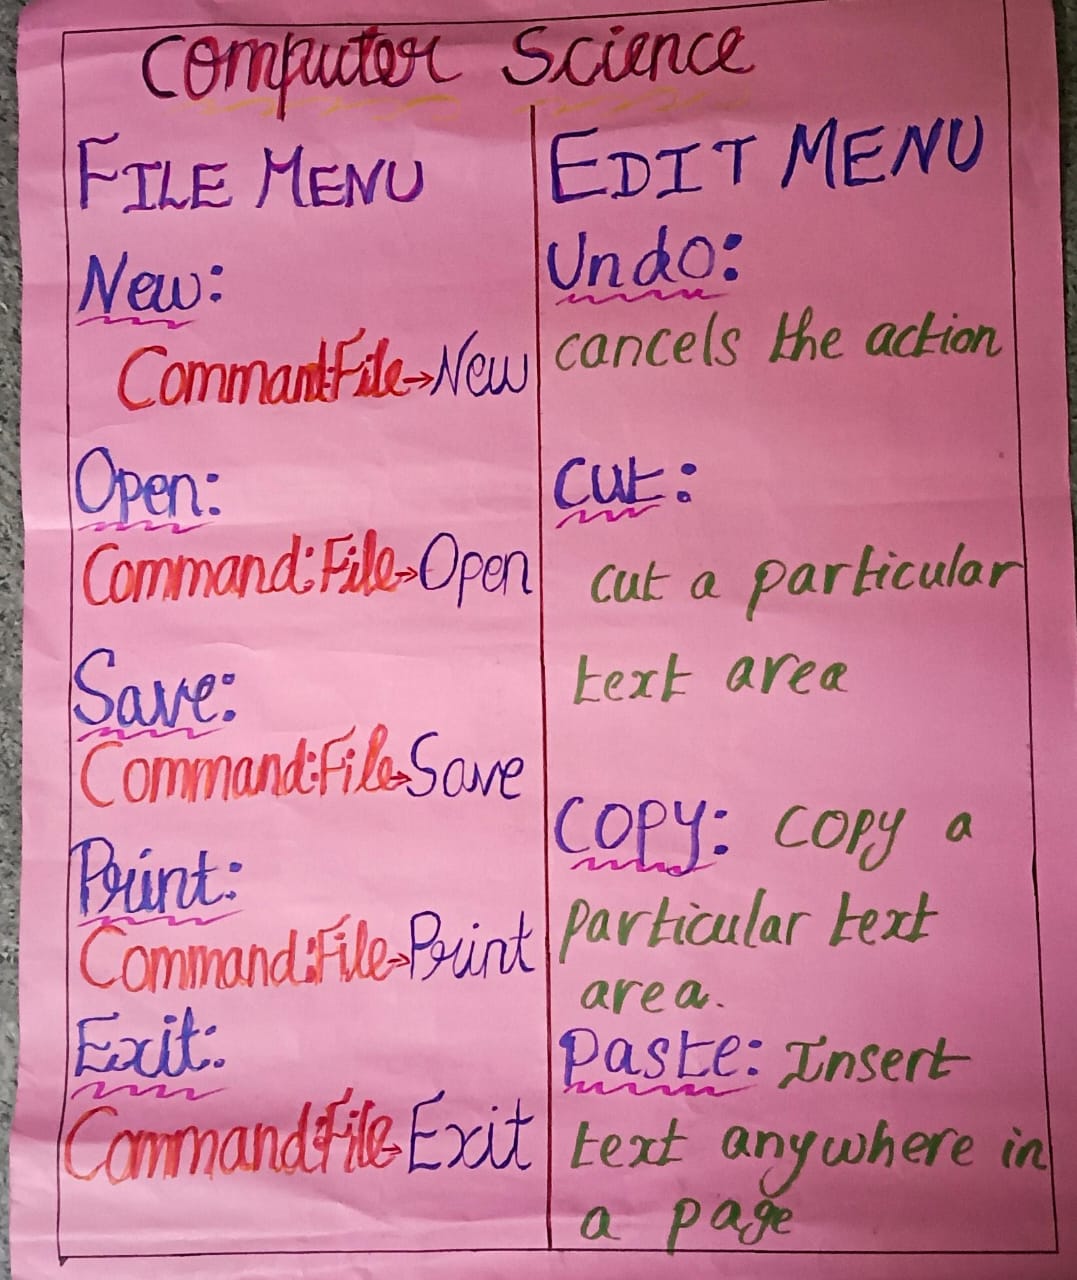 Computer Science
FILE MENU
New:
Command:File→New
Open:
Command:File→Open
Save:
Command:File→Save
Print:
Command:File→Print
Exit:
Command:File→Exit
EDIT MENU
Undo:
cancels the action
cut:
cut a particular
text area
COPY: copy a
particular text
area.
Paste: Insert
text anywhere in
a page